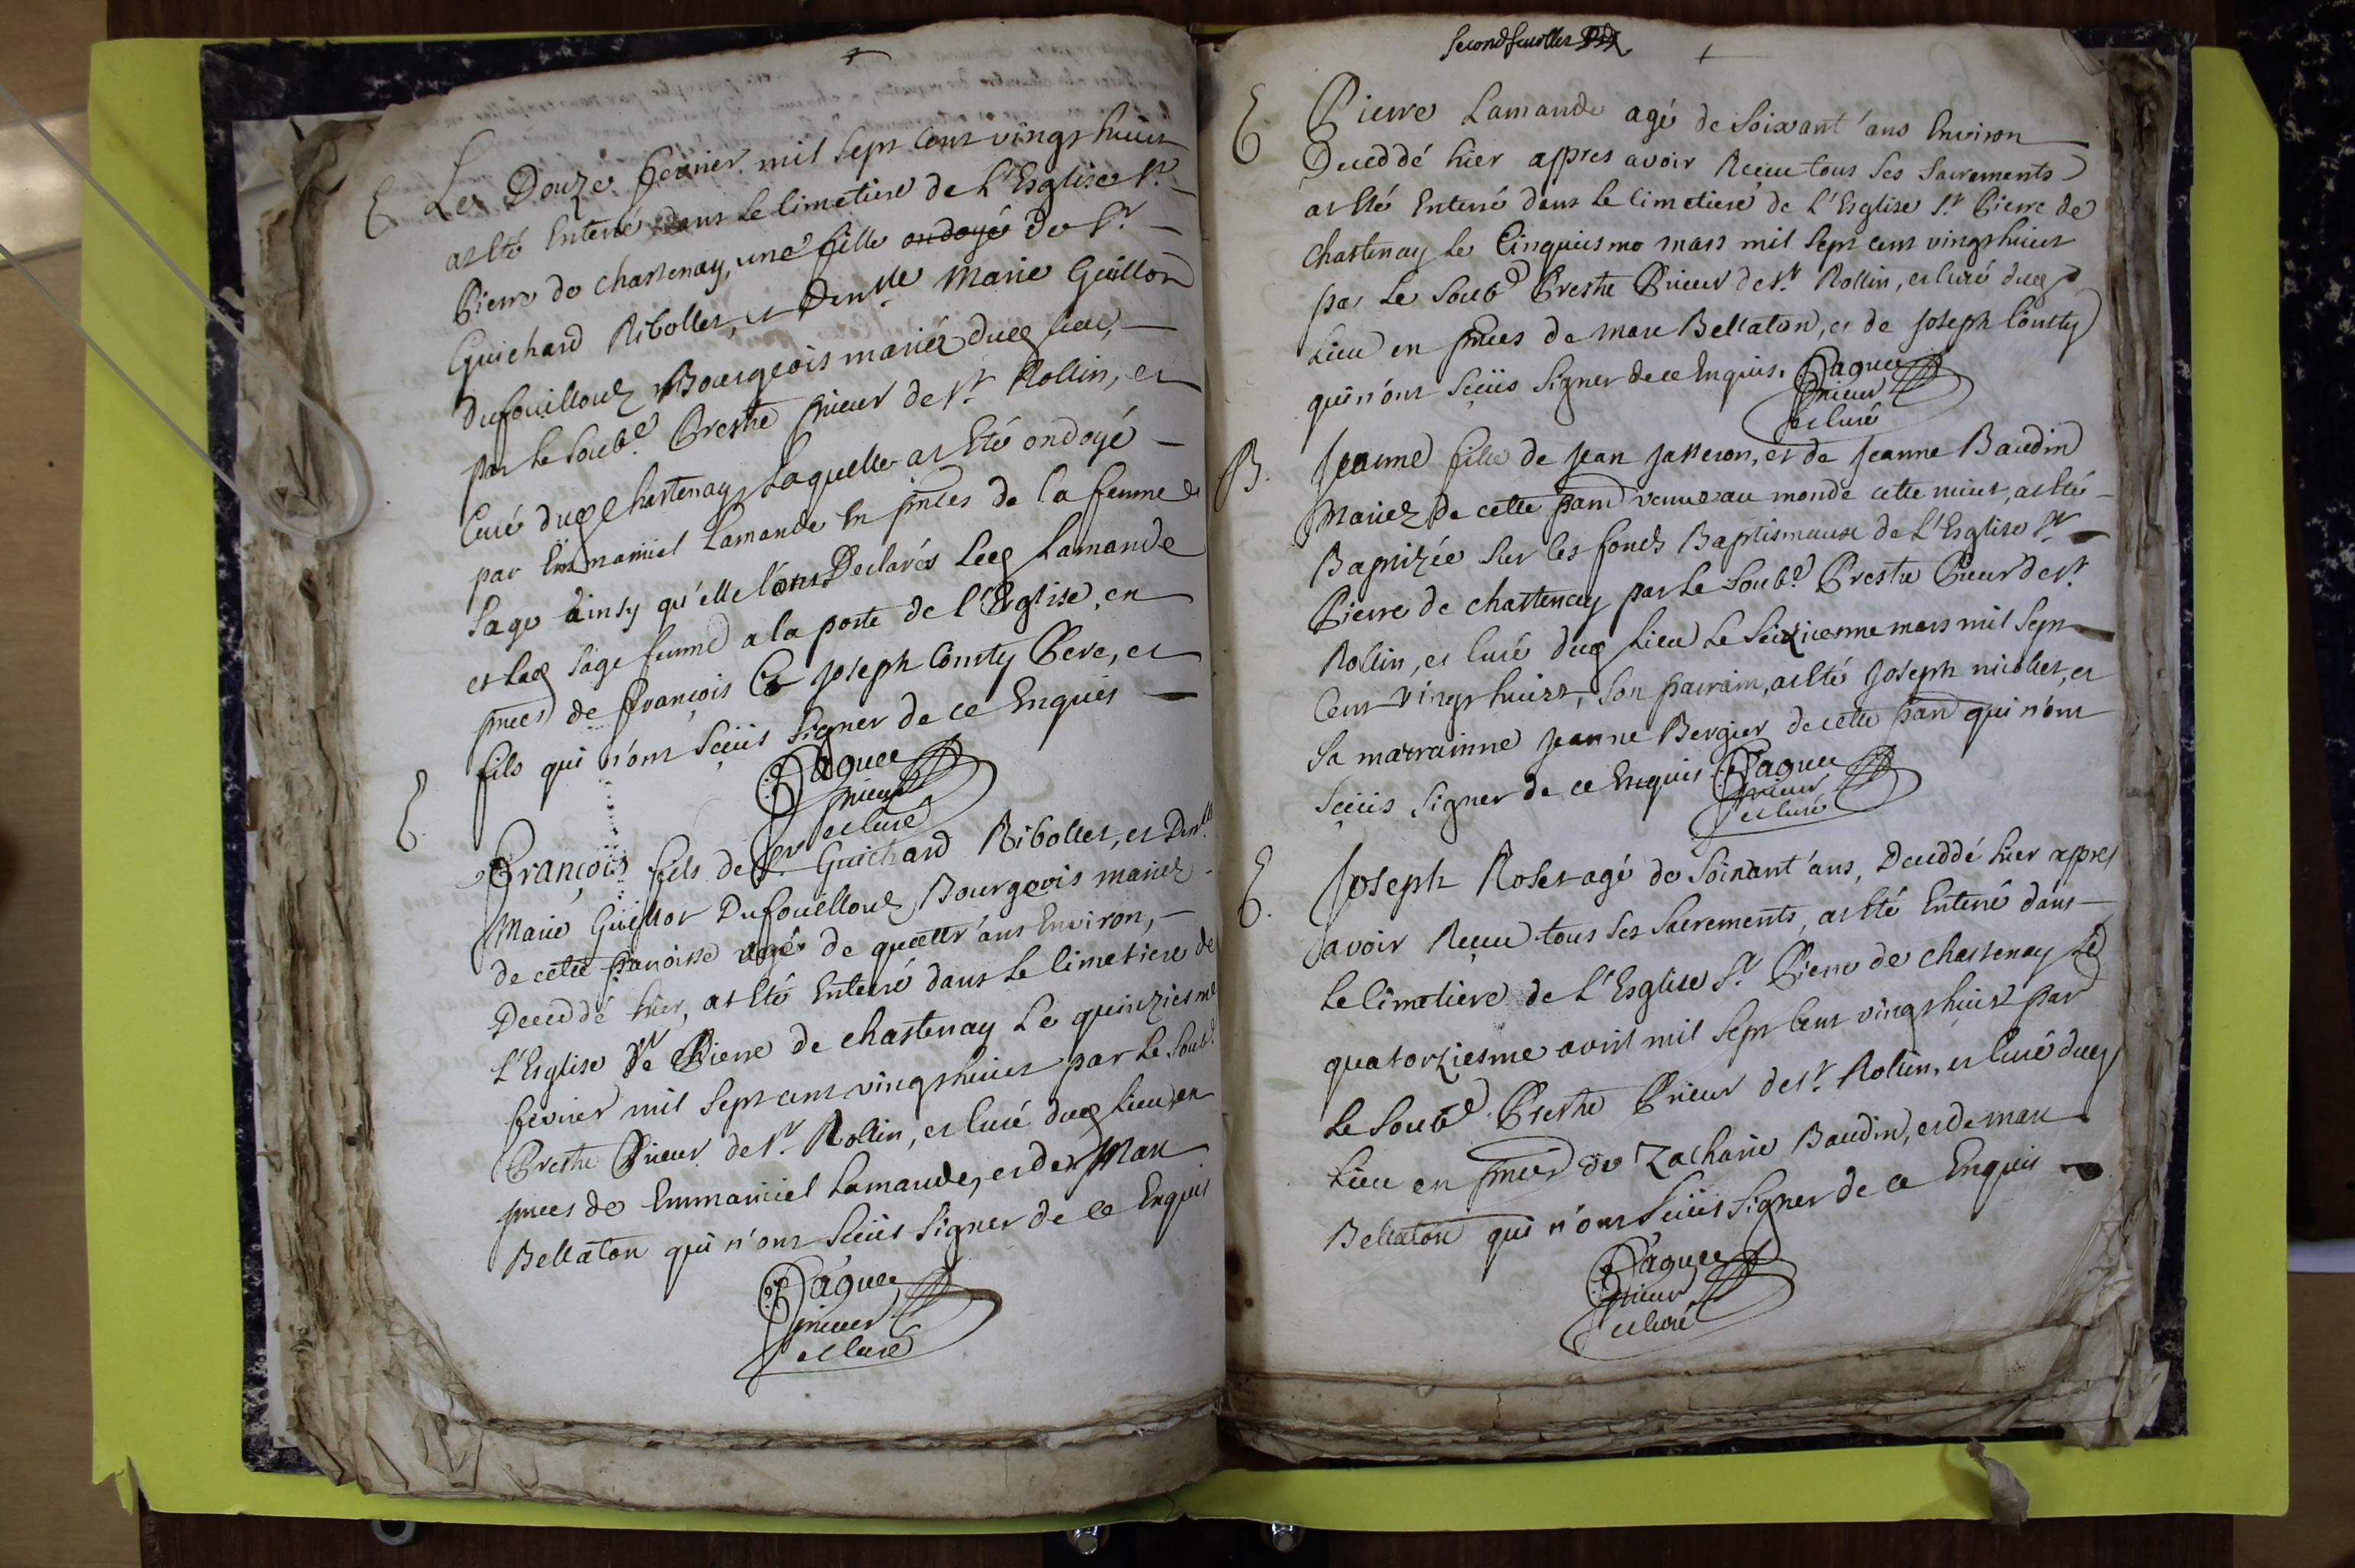 E Les Douze fevrier mil sept cent vingt huict
at Eté Enterré dans le Cimetiere de L'Esglise St
Pierre de chastenay, une fille ondoyé de Sr
Guichard Ribollet, et Demlle Marie Guillot
Dufouilloud Bourgeois mariéz dud lieu,
par Le Soubé Prestre prieur de St Rollin, et
Curé dud Chastenay Laquelle at Eté ondoyé
par Emmanuel Lamande En pnces de la femme
Sage ainsy qu'elle l'ont Declarés Led Lamande
et Lad Sage femme a la porte de l'Esglise, en
pnces de François Joseph Coursty Pere, et
fils qui n'ont Sceüs Signer de ce Enquis
Paquee
prieur
et curé
E. François fils de Sr Guichard Ribollet, et Demlle
Marie Guillot Dufouilloud Bourgeois mariez
de cette parroisse agé de quattr'ans Environ,
Deceddé hier, at Eté Enterré dans Le Cimetiere de
L'Esglise St Pierre de chastenay Le quinziesme
fevrier mil Sept cent vingt huict par Le Soubé
Prestre Prieur de St Rollin, et Curé dud Lieu en
pnces de Emmanüel Lamande, et de Marc
Bellaton qui n'ont Sceüs Signer de ce Enquis
Paquee
prieur
et curé
Second feuillet
E. Pierre Lamande agé de Soixant'ans Environ
Deceddé hier appres avoir Receu tous Ses Sacrements
at Eté Enterré dans Le Cimetiere de L'Esglise St Pierre de
Chastenay Le Cinquiesme mars mil Sept cent vingt huict
par Le Soubé Prestre Prieur de St Rollin, et Curé dud
Lieu en pnces de Marc Bellaton, et de Joseph Coursty
qui n'ont Sceüs Signer de ce Enquis. Paquee
prieur
et curé
B. Jeanne fille de Jean Jasseron, et de Jeanne Baudin
Mariez de cette parr venue au monde cette nuict, at Eté
Baptizée Sur les fonds Baptismaux de L'Esglise St
Pierre de chastenay par Le Soubé Prestre Prieur de St
Rollin, et Curé dud Lieu Le Seiziesme mars mil Sept
Cent vingt huict, Son parrain, at Eté Joseph nicollet, et
Sa marrainne Jeanne Bergier de cette parr qui n'ont
Sceüs Signer de ce Enquis Paquee
prieur
et curé
E. Joseph Roset agé de Soixant'ans, Deceddé hier appres
avoir Receu tous Ses Sacrements, at Eté Enterré dans
Le Cimetiere de L'Esglise St Pierre de chastenay Le
quatorziesme avril mil Sept Cent vingt huict par
Le Soubé Prestre Prieur de St Rollin, et Curé dud
Lieu en pnces de Zacharie Baudin, et de Marc
Bellaton qui n'ont Sceüs Signer de ce Enquis
Paquee
prieur
et curé